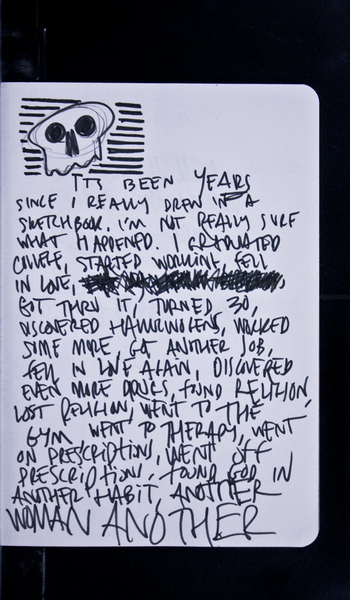 ITS BEEN YEARS
SINCE I REALLY DREW IN A
SKETCHBOOK. I'M NOT REALLY SURE
WHAT HAPPENED. I GRADUATED
COLLEGE, STARTED WORKING, FELL
IN LOVE,
GOT THRU IT, TURNED 30,
DISCOVERED HALLUCINOGENS, WORKED
SOME MORE, GOT ANOTHER JOB,
FELL IN LOVE AGAIN, DISCOVERED
EVEN MORE DRUGS, FOUND RELIGION,
LOST RELIGION, WENT TO THE
GYM WENT TO THERAPY, WENT
ON PRESCRIPTION, WENT OFF
PRESCRIPTION. FOUND GOD IN
ANOTHER HABIT ANOTHER
WOMAN ANOTHER